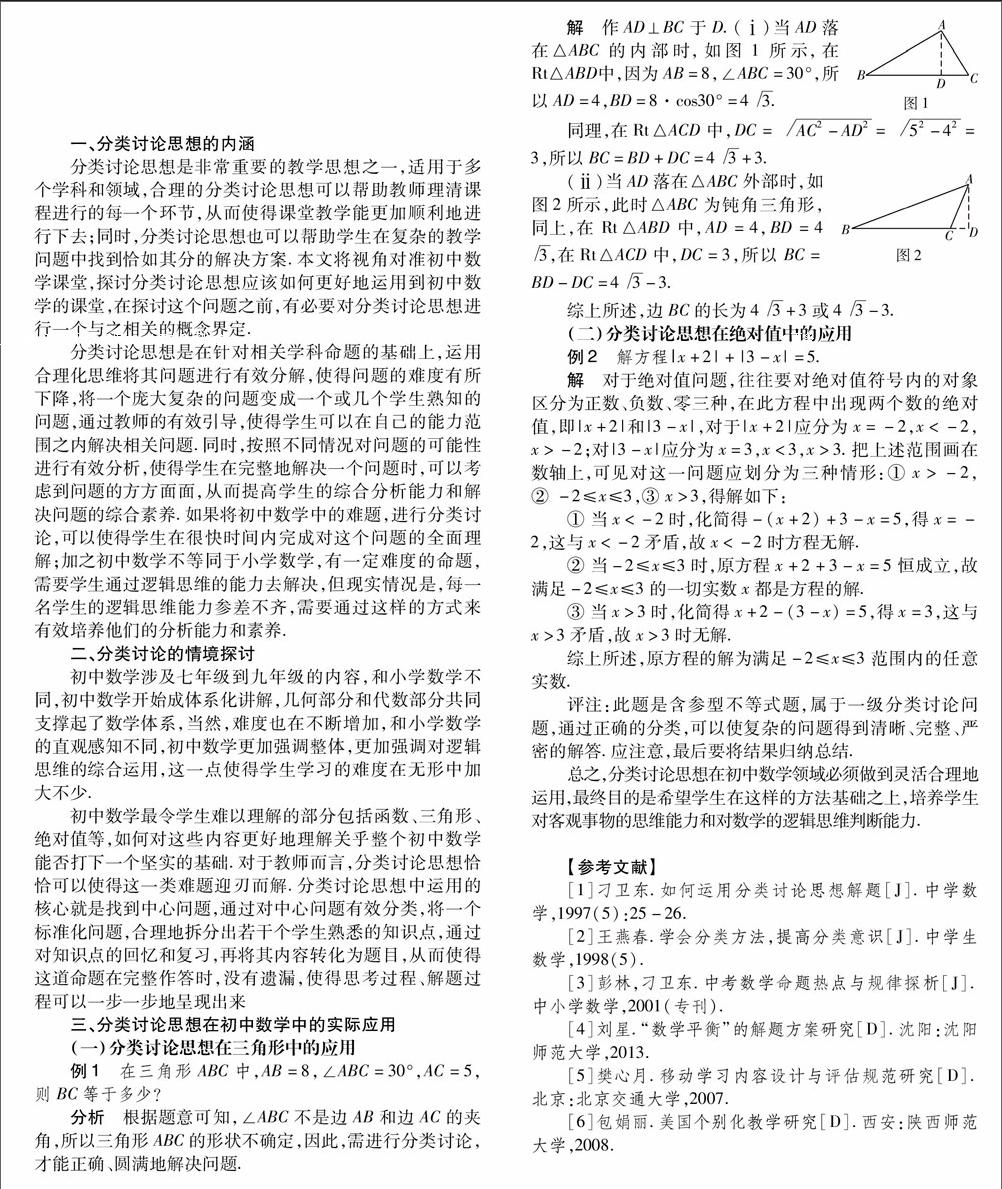 一、分类讨论思想的内涵
分类讨论思想是非常重要的教学思想之一,适用于多
个学科和领域,合理的分类讨论思想可以帮助教师理清课
程进行的每一个环节,从而使得课堂教学能更加顺利地进
行下去;同时,分类讨论思想也可以帮助学生在复杂的教学
问题中找到恰如其分的解决方案. 本文将视角对准初中数
学课堂,探讨分类讨论思想应该如何更好地运用到初中数
学的课堂,在探讨这个问题之前,有必要对分类讨论思想进
行一个与之相关的概念界定.
分类讨论思想是在针对相关学科命题的基础上,运用
合理化思维将其问题进行有效分解,使得问题的难度有所
下降,将一个庞大复杂的问题变成一个或几个学生熟知的
问题,通过教师的有效引导,使得学生可以在自己的能力范
围之内解决相关问题. 同时,按照不同情况对问题的可能性
进行有效分析,使得学生在完整地解决一个问题时,可以考
虑到问题的方方面面,从而提高学生的综合分析能力和解
决问题的综合素养. 如果将初中数学中的难题,进行分类讨
论,可以使得学生在很快时间内完成对这个问题的全面理
解;加之初中数学不等同于小学数学,有一定难度的命题,
需要学生通过逻辑思维的能力去解决,但现实情况是,每一
名学生的逻辑思维能力参差不齐,需要通过这样的方式来
有效培养他们的分析能力和素养.
二、分类讨论的情境探讨
初中数学涉及七年级到九年级的内容,和小学数学不
同,初中数学开始成体系化讲解,几何部分和代数部分共同
支撑起了数学体系,当然,难度也在不断增加,和小学数学
的直观感知不同,初中数学更加强调整体,更加强调对逻辑
思维的综合运用,这一点使得学生学习的难度在无形中加
大不少.
初中数学最令学生难以理解的部分包括函数、三角形、
绝对值等,如何对这些内容更好地理解关乎整个初中数学
能否打下一个坚实的基础. 对于教师而言,分类讨论思想恰
恰可以使得这一类难题迎刃而解. 分类讨论思想中运用的
核心就是找到中心问题,通过对中心问题有效分类,将一个
标准化问题,合理地拆分出若干个学生熟悉的知识点,通过
对知识点的回忆和复习,再将其内容转化为题目,从而使得
这道命题在完整作答时,没有遗漏,使得思考过程、解题过
程可以一步一步地呈现出来
三、分类讨论思想在初中数学中的实际应用
(一)分类讨论思想在三角形中的应用
例1 在三角形 ABC 中,AB=8,∠ABC=30°,AC=5,
则 BC 等于多少?
分析 根据题意可知,∠ABC 不是边 AB 和边 AC 的夹
角,所以三角形 ABC 的形状不确定,因此,需进行分类讨论,
才能正确、圆满地解决问题.
解 作 AD⊥BC 于 D. (ⅰ)当 AD 落
在△ABC 的内部时, 如图 1 所示, 在
Rt△ABD中,因为 AB=8,∠ABC=30°,所
以 AD=4,BD=8·cos30°=4√3.
A
B
D
C
图1
同理,在 Rt△ACD 中,DC=√(AC²-AD²)=√(5²-4²)=
3,所以 BC=BD+DC=4√3+3.
(ⅱ)当 AD 落在△ABC 外部时,如
图2所示,此时△ABC 为钝角三角形,
同上,在 Rt△ABD 中,AD=4,BD=4
√3,在 Rt△ACD 中,DC=3,所以 BC=
BD-DC=4√3-3.
A
B
C
D
图2
综上所述,边 BC 的长为 4√3+3 或 4√3-3.
(二)分类讨论思想在绝对值中的应用
例2 解方程|x+2|+|3-x|=5.
解 对于绝对值问题,往往要对绝对值符号内的对象
区分为正数、负数、零三种,在此方程中出现两个数的绝对
值,即|x+2|和|3-x|,对于|x+2|应分为 x=-2,x<-2,
x>-2;对|3-x|应分为 x=3,x<3,x>3. 把上述范围画在
数轴上,可见对这一问题应划分为三种情形:① x>-2,
② -2≤x≤3,③ x>3,得解如下:
① 当 x<-2 时,化简得-(x+2)+3-x=5,得 x=-
2,这与 x<-2 矛盾,故 x<-2 时方程无解.
② 当-2≤x≤3 时,原方程 x+2+3-x=5 恒成立,故
满足-2≤x≤3 的一切实数 x 都是方程的解.
③ 当 x>3 时,化简得 x+2-(3-x)=5,得 x=3,这与
x>3 矛盾,故 x>3 时无解.
综上所述,原方程的解为满足-2≤x≤3 范围内的任意
实数.
评注:此题是含参型不等式题,属于一级分类讨论问
题,通过正确的分类,可以使复杂的问题得到清晰、完整、严
密的解答. 应注意,最后要将结果归纳总结.
总之,分类讨论思想在初中数学领域必须做到灵活合理地
运用,最终目的是希望学生在这样的方法基础之上,培养学生
对客观事物的思维能力和对数学的逻辑思维判断能力.
【参考文献】
[1]刁卫东. 如何运用分类讨论思想解题[J]. 中学数
学,1997(5):25-26.
[2]王燕春. 学会分类方法,提高分类意识[J]. 中学生
数学,1998(5).
[3]彭林,刁卫东. 中考数学命题热点与规律探析[J].
中小学数学,2001(专刊).
[4]刘星. “数学平衡”的解题方案研究[D]. 沈阳:沈阳
师范大学,2013.
[5]樊心月. 移动学习内容设计与评估规范研究[D].
北京:北京交通大学,2007.
[6]包娟丽. 美国个别化教学研究[D]. 西安:陕西师范
大学,2008.